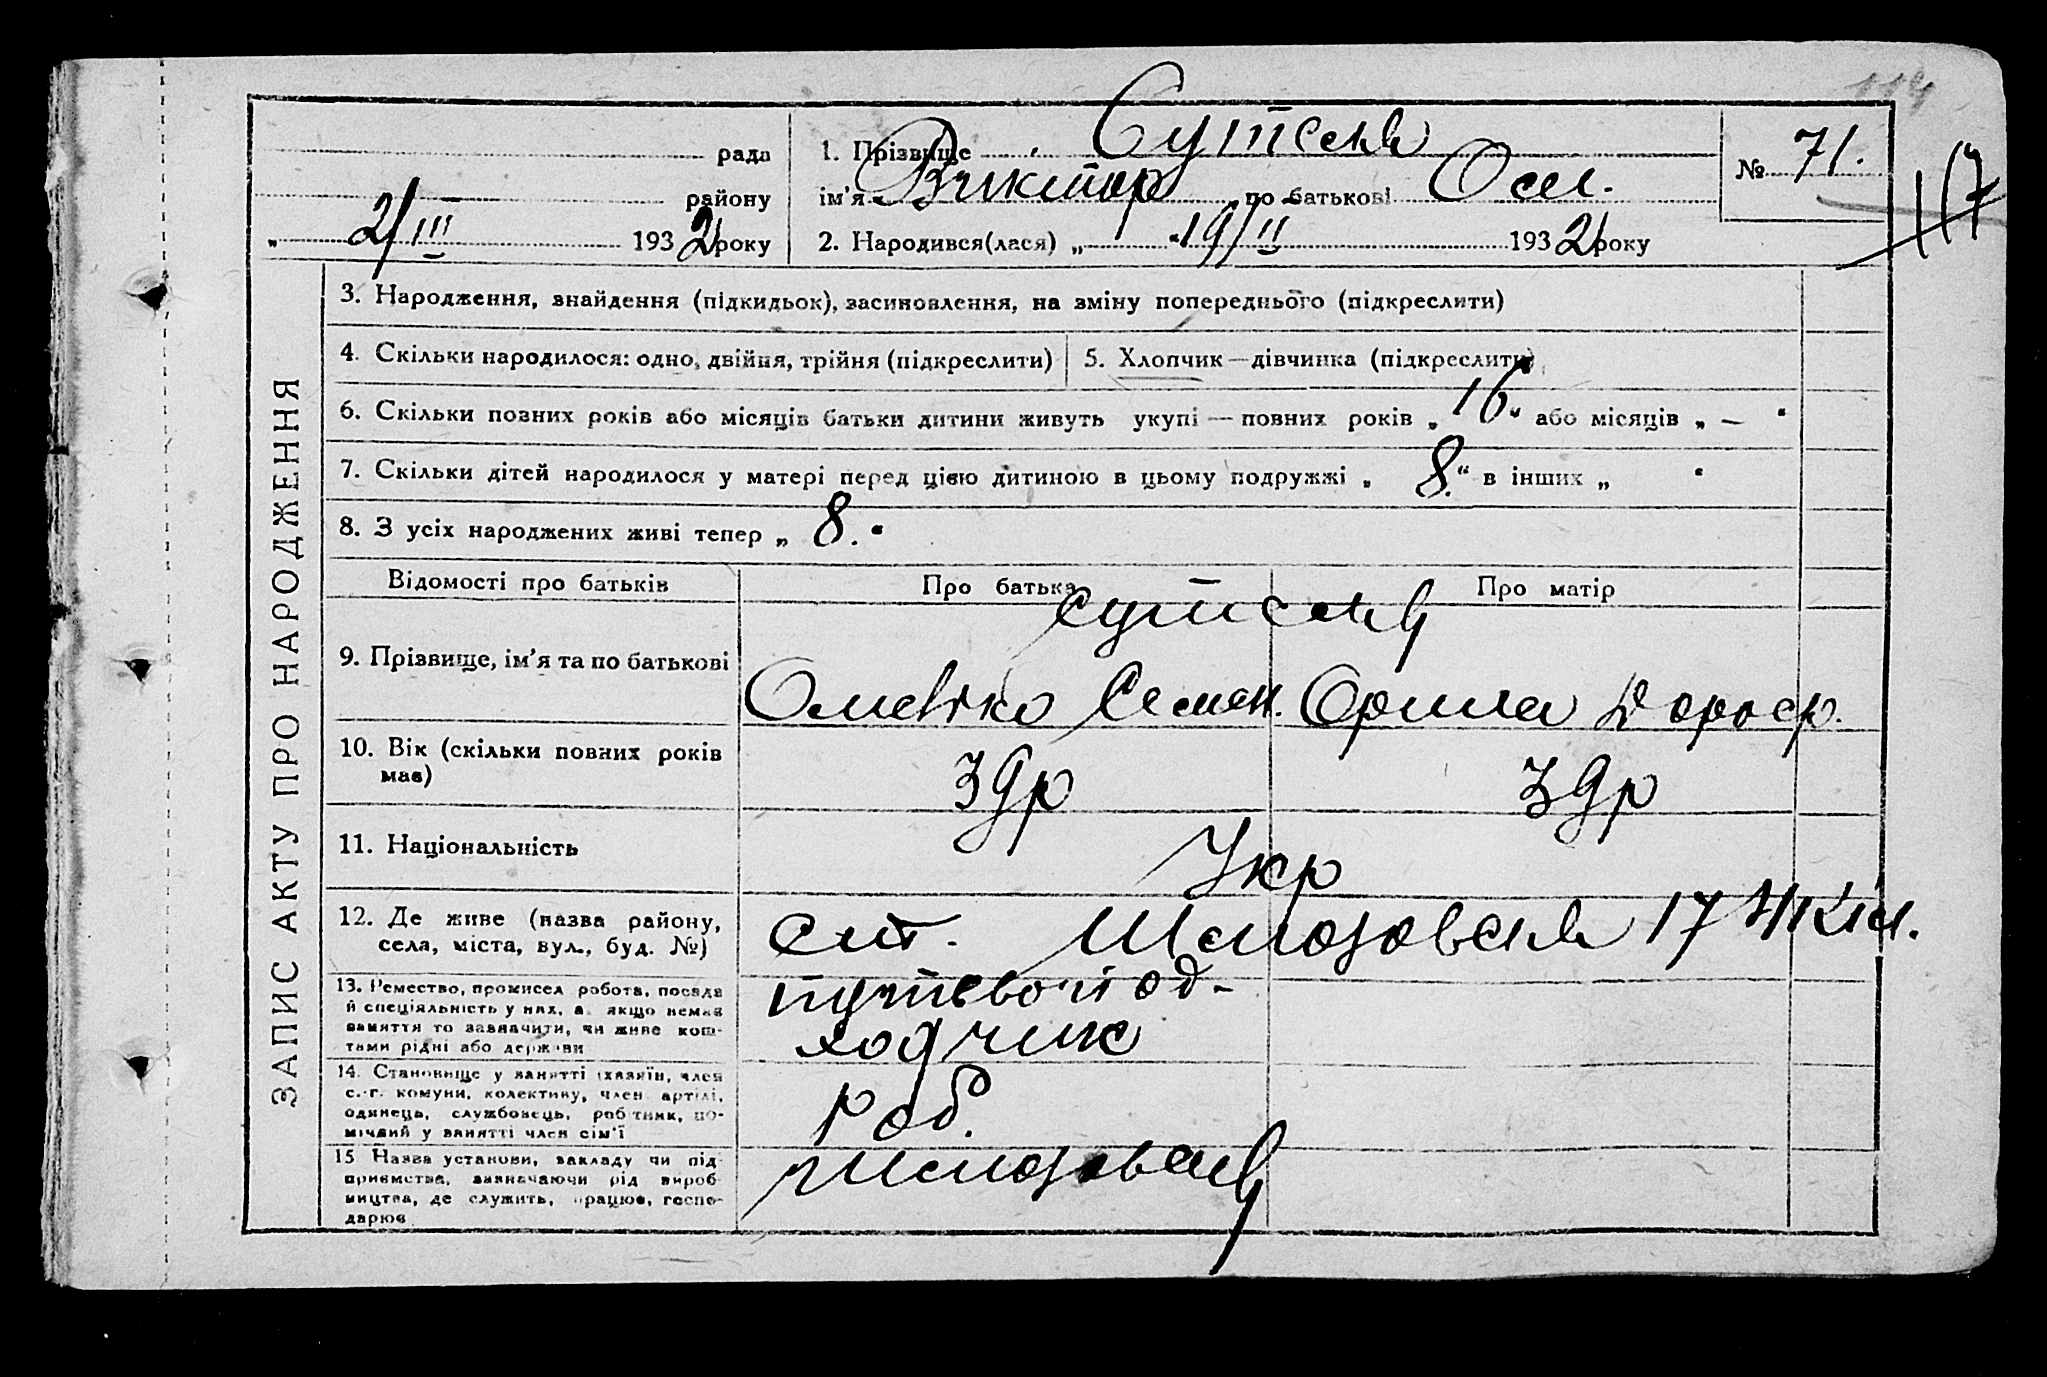 114
рада
1. Прізвище Сутсен
№ 71.
району
ім'я Виктор по батькові Ом.
117
„ 2/III 1932 року
2. Народився(лася) „ 19/II 1932 року
ЗАПИС АКТУ ПРО НАРОДЖЕННЯ
3. Народження, знайдення (підкидьок), засиновлення, на зміну попереднього (підкреслити)
4. Скільки народилося: одно, двійня, трійня (підкреслити)
5. Хлопчик — дівчинка (підкреслити)
6. Скільки повних років або місяців батьки дитини живуть укупі — повних років „ 16 “ або місяців „ — “
7. Скільки дітей народилося у матері перед цією дитиною в цьому подружжі „ 8. “ в інших „ “
8. З усіх народжених живі тепер „ 8. “
Відомості про батьків
Про батька
Про матір
9. Прізвище, ім'я та по батькові
Семен.
Орина Дороф.
10. Вік (скільки повних років має)
39р
39р
11. Національність
Укр
12. Де живе (назва району,
села, міста, вул., буд. №)
ст. 17
13. Ремество, промисел робота, посада
й спеціяльність у них, а якщо немає
заняття то зазначити, чи живе кош-
тами рідні або держави
путевой од-
ходчик
14. Становище у занятті (хазяїн, член
с.-г. комуни, колективу, член артілі,
одинець, службовець, робітник, по-
мічний у занятті член сім'ї
роб.
15 Назва установи, закладу чи під-
приємства, зазначаючи рід вироб-
ництва, де служить, працює, госпо-
дарює